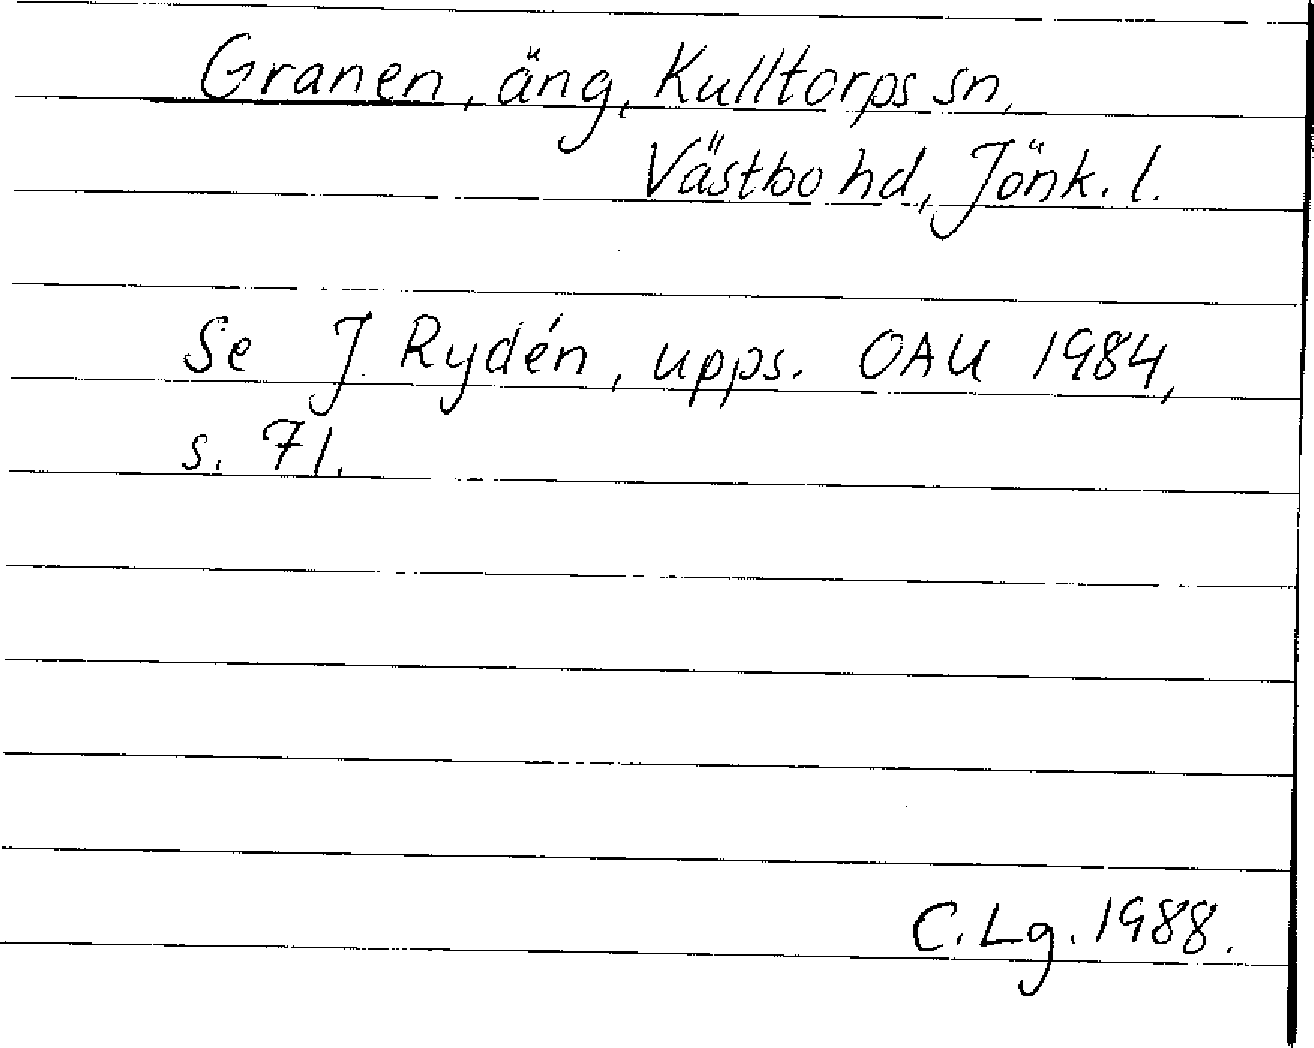 Granen, äng, Kulltorps sn,
Västbo hd, Jönk. l.
Se J. Rydén, upps. OAU 1984,
s. 71.
C. Lg. 1988.